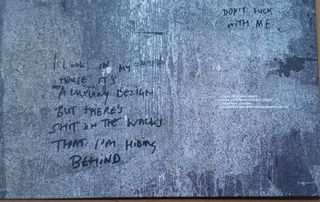 DON'T FUCK
WITH ME.
I LOOK IN MY
HOUSE IT'S
A LUXURY DESIGN
BUT THERE'S
SHIT ON THE WALLS
THAT I'M HIDING
BEHIND